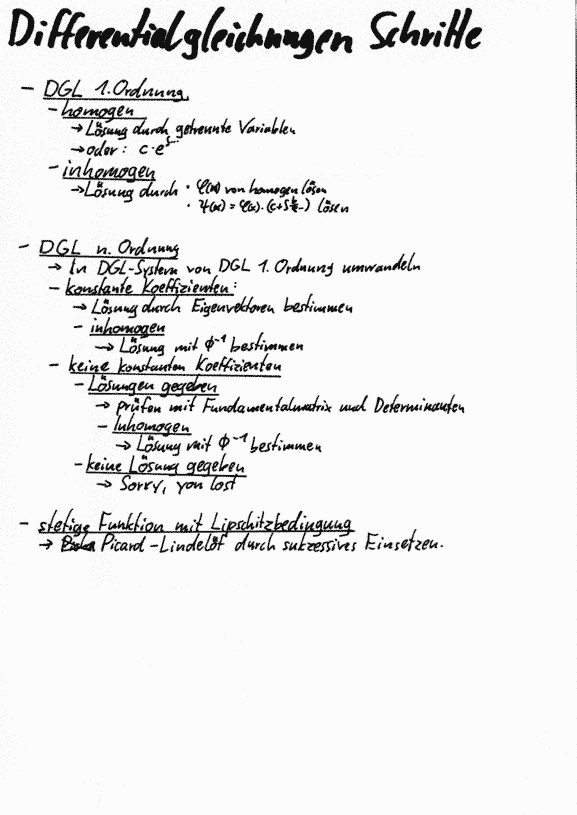 Differentialgleichungen Schritte
- DGL 1. Ordnung
- homogen
→ Lösung durch getrennte Variablen
→ oder: c·e^∫...
- inhomogen
→ Lösung durch • φ(x) von homogen lösen
• Ψ(x) = φ(x)·(c+∫ ) lösen
- DGL n. Ordnung
→ In DGL-System von DGL 1. Ordnung umwandeln
- konstante Koeffizienten:
→ Lösung durch Eigenvektoren bestimmen
- inhomogen
→ Lösung mit Φ⁻¹ bestimmen
- keine konstanten Koeffizienten
- Lösungen gegeben
→ prüfen mit Fundamentalmatrix und Determinanten
- Inhomogen
→ Lösung mit Φ⁻¹ bestimmen
- keine Lösung gegeben
→ Sorry, you lost
- stetige Funktion mit Lipschitzbedingung
→ Picard-Lindelöf durch sukzessives Einsetzen.